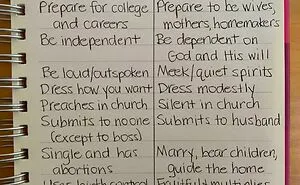 Prepare for college Prepare to be wives,
and careers mothers, homemakers
Be independent Be dependent on
God and His will
Be loud/outspoken Meek/quiet spirits
Dress how you want Dress modestly
Preaches in church Silent in church
Submits to no one Submits to husband
(except to boss)
Single and has Marry, bear children,
abortions guide the home
birth control Fruitful multiplies